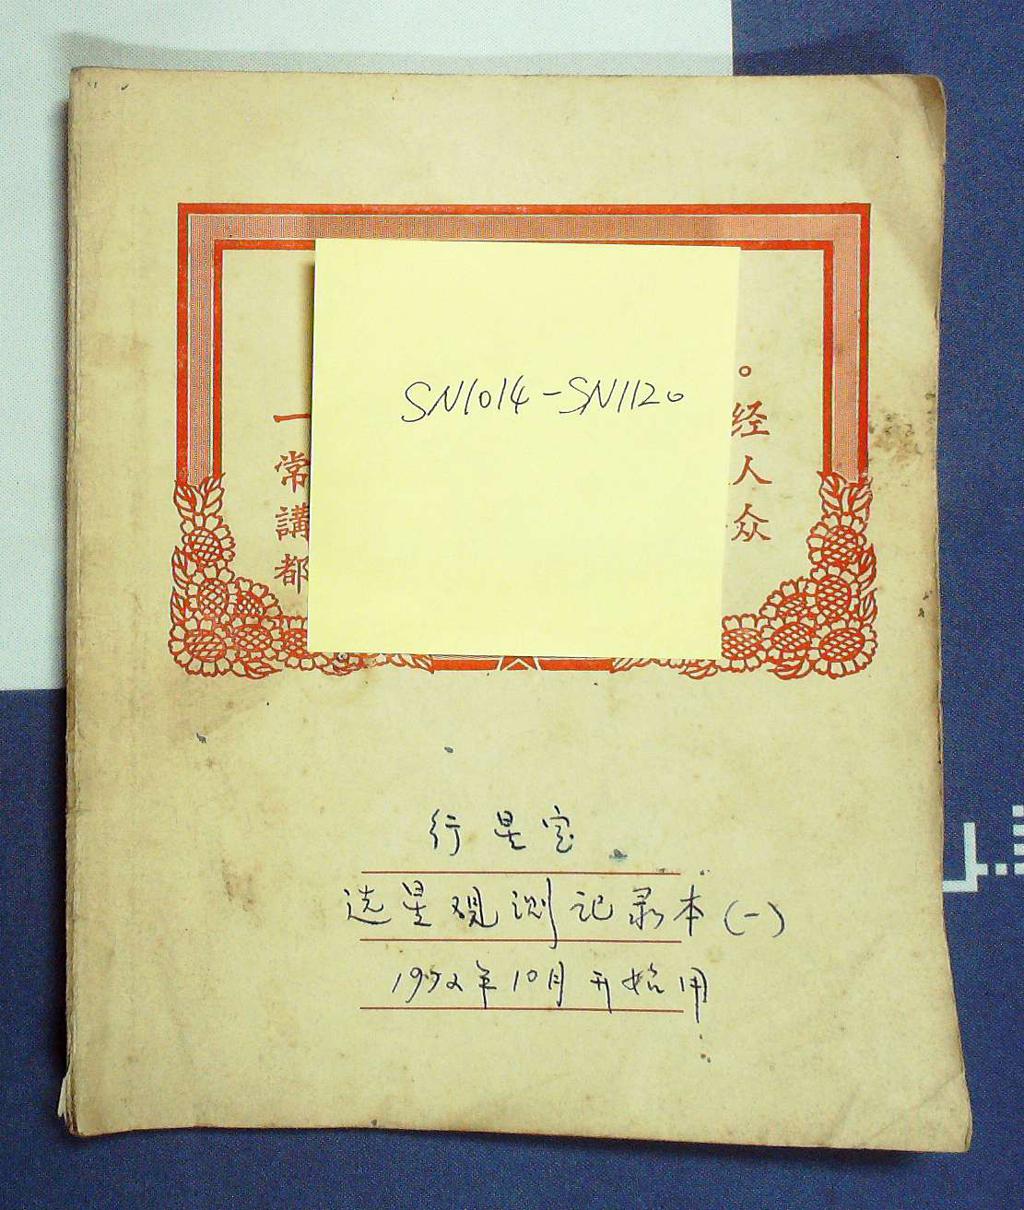 SN1014-SN1120
。
经
人
众
一
常
講
都
行星室
选星观测记录本(一)
1992年10月开始用